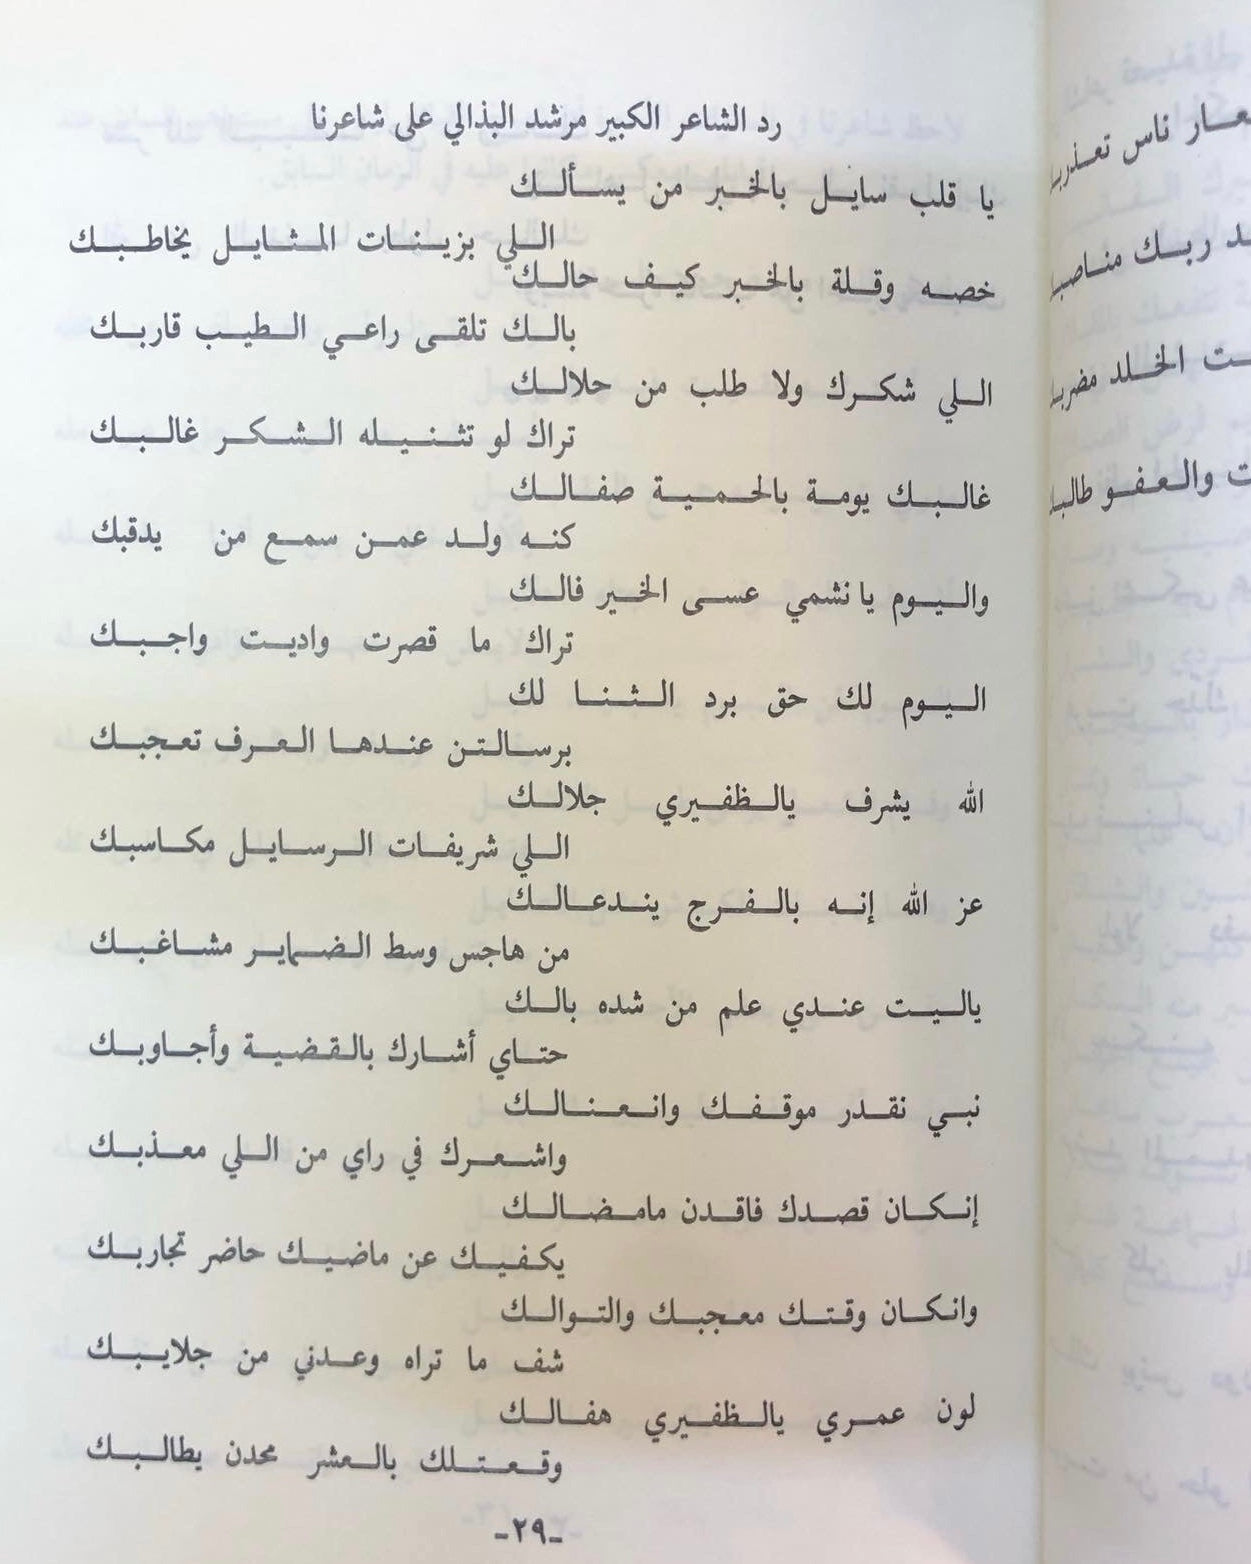 رد الشاعر الكبير مرشد البذالي على شاعرنا
يا قلب سايل بالخبر من يسألك
اللي بزينات المثايل يخاطبك
خصه وقلة بالخبر كيف حالك
بالك تلقى راعي الطيب قاربك
اللي شكرك ولا طلب من حلالك
تراك لو تثنيله الشكر غالبك
غالبك يومة بالحمية صفالك
كنه ولد عمن سمع من يدقبك
واليوم يا نشمي عسى الخير فالك
تراك ما قصرت واديت واجبك
اليوم لك حق برد الثنا لك
برسالتن عندها العرف تعجبك
الله يشرف يالظفيري جلالك
اللي شريفات الرسايل مكاسبك
عز الله إنه بالفرج يندعالك
من هاجس وسط الضماير مشاغبك
ياليت عندي علم من شده بالك
حتاي أشارك بالقضية وأجاوبك
نبي نقدر موقفك وانعنالك
واشعرك في راي من اللي معذبك
إنكان قصدك فاقدن مامضالك
يكفيك عن ماضيك حاضر تجاربك
وانكان وقتك معجبك والتوالك
شف ما تراه وعدني من جلايبك
لون عمري يالظفيري هفالك
وقعتلك بالعشر محدن يطالبك
-٢٩-
ناس تعذربا
ربك مناصبا
الخلد مضربا
والعفو طالبا